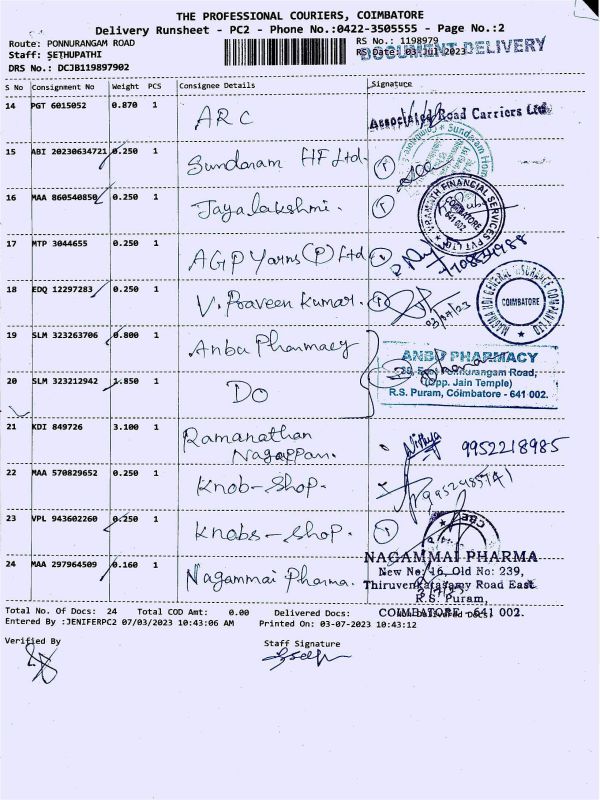 THE PROFESSIONAL COURIERS, COIMBATORE
Delivery Runsheet - PC2 - Phone No.:0422-3505555 - Page No.:2
Route: PONNURANGAM ROAD
RS No.: 1198979
Staff: SETHUPATHI
RS Date: 03-Jul-2023
DOCUMENT DELIVERY
DRS No.: DCJB119897902
S No Consignment No Weight PCS Consignee Details Signature
14 PGT 6015052 0.870 1 ARC
Associated Road Carriers Ltd
15 ABI 20230634721 0.250 1 Sundaram HF Ltd.
Sundaram Home
16 MAA 860540850 0.250 1 Jayalakshmi.
FINANCIAL SERVICES PVT LTD
COIMBATORE
641 002
17 MTP 3044655 0.250 1 AGP Yarns (P) Ltd
18 EDQ 12297283 0.250 1 V. Praveen Kumar.
MAGMA HDI GENERAL INSURANCE COMPANY LTD
COIMBATORE
19 SLM 323263706 0.800 1 Anbu Pharmacy
ANBU PHARMACY
Ponnurangam Road,
(Opp. Jain Temple)
R.S. Puram, Coimbatore - 641 002.
20 SLM 323212942 1.850 1 Do
21 KDI 849726 3.100 1 Ramanathan
Nagappan.
Nithya 9952218985
22 MAA 570829652 0.250 1 Knob-Shop.
23 VPL 943602260 0.250 1 Knobs-Shop.
24 MAA 297964509 0.160 1 Nagammai Pharma.
NAGAMMAI PHARMA
New No: 16, Old No: 239,
Thiruvenkatasamy Road East
R.S. Puram,
COIMBATORE - 641 002.
Total No. Of Docs: 24 Total COD Amt: 0.00 Delivered Docs:
Entered By :JENIFERPC2 07/03/2023 10:43:06 AM Printed On: 03-07-2023 10:43:12
Verified By
Staff Signature